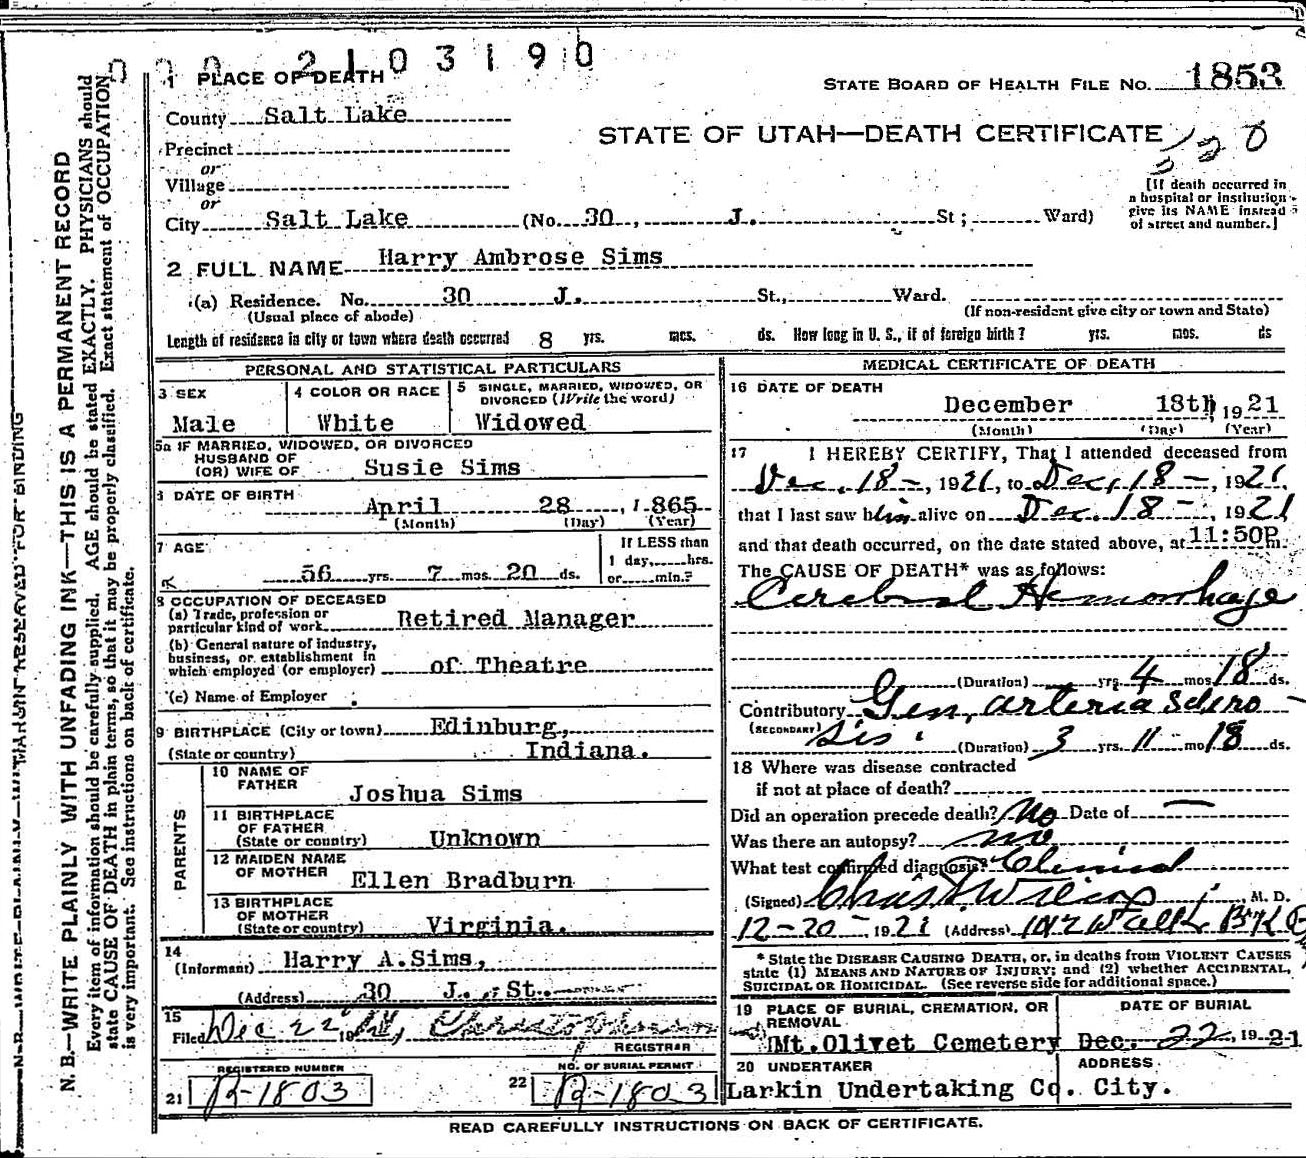 2103190
1 PLACE OF DEATH
STATE BOARD OF HEALTH FILE NO. 1853
County Salt Lake
STATE OF UTAH—DEATH CERTIFICATE
Precinct
or
Village
or
[If death occurred in a hospital or institution give its NAME instead of street and number.]
City Salt Lake (No. 30, J. St; Ward)
2 FULL NAME Harry Ambrose Sims
(a) Residence. No. 30 J. St., Ward.
(Usual place of abode) (If non-resident give city or town and State)
Length of residence in city or town where death occurred 8 yrs. mos. ds. How long in U. S., if of foreign birth? yrs. mos. ds
PERSONAL AND STATISTICAL PARTICULARS
3 SEX
Male
4 COLOR OR RACE
White
5 SINGLE, MARRIED, WIDOWED, OR
DIVORCED (Write the word)
Widowed
5a IF MARRIED, WIDOWED, OR DIVORCED
HUSBAND OF
(OR) WIFE OF Susie Sims
6 DATE OF BIRTH
April 28, 1865
(Month) (Day) (Year)
7 AGE
56 yrs. 7 mos. 20 ds.
If LESS than
1 day, hrs.
or min.?
8 OCCUPATION OF DECEASED
(a) Trade, profession or
particular kind of work Retired Manager
(b) General nature of industry,
business, or establishment in
which employed (or employer) of Theatre
(c) Name of Employer
9 BIRTHPLACE (City or town) Edinburg,
(State or country) Indiana.
PARENTS
10 NAME OF
FATHER
Joshua Sims
11 BIRTHPLACE
OF FATHER
(State or country) Unknown
12 MAIDEN NAME
OF MOTHER
Ellen Bradburn
13 BIRTHPLACE
OF MOTHER
(State or country) Virginia.
14
(Informant) Harry A.Sims,
(Address) 30 J. St.
15
Filed Dec 22
REGISTRAR
REGISTERED NUMBER
21 R-1803
NO. OF BURIAL PERMIT
22 R-1803
MEDICAL CERTIFICATE OF DEATH
16 DATE OF DEATH
December 18th, 1921
(Month) (Day) (Year)
17 I HEREBY CERTIFY, That I attended deceased from
Dec. 18-, 1921, to Dec, 18-, 1921,
that I last saw him alive on Dec. 18-, 1921
and that death occurred, on the date stated above, at 11:50P m.
The CAUSE OF DEATH* was as follows:
Cerebral Hemorrhage
(Duration) yrs. 4 mos 18 ds.
Contributory Gen, arteria Sclero-
(SECONDARY) sis.
(Duration) 3 yrs. 11 mo 18 ds.
18 Where was disease contracted
if not at place of death?
Did an operation precede death? No Date of —
Was there an autopsy? no
What test confirmed diagnosis? Clinical
(Signed) M. D.
12-20-, 1921 (Address)
* State the DISEASE CAUSING DEATH, or, in deaths from VIOLENT CAUSES
state (1) MEANS AND NATURE OF INJURY; and (2) whether ACCIDENTAL,
SUICIDAL OR HOMICIDAL. (See reverse side for additional space.)
19 PLACE OF BURIAL, CREMATION, OR
REMOVAL
Mt.Olivet Cemetery
DATE OF BURIAL
Dec. 22, 1921
20 UNDERTAKER
Larkin Undertaking Co.
ADDRESS
City.
READ CAREFULLY INSTRUCTIONS ON BACK OF CERTIFICATE.
MARGIN RESERVED FOR BINDING
N. B.—WRITE PLAINLY WITH UNFADING INK—THIS IS A PERMANENT RECORD
Every item of information should be carefully supplied. AGE should be stated EXACTLY. PHYSICIANS should
state CAUSE OF DEATH in plain terms, so that it may be properly classified. Exact statement of OCCUPATION
is very important. See instructions on back of certificate.